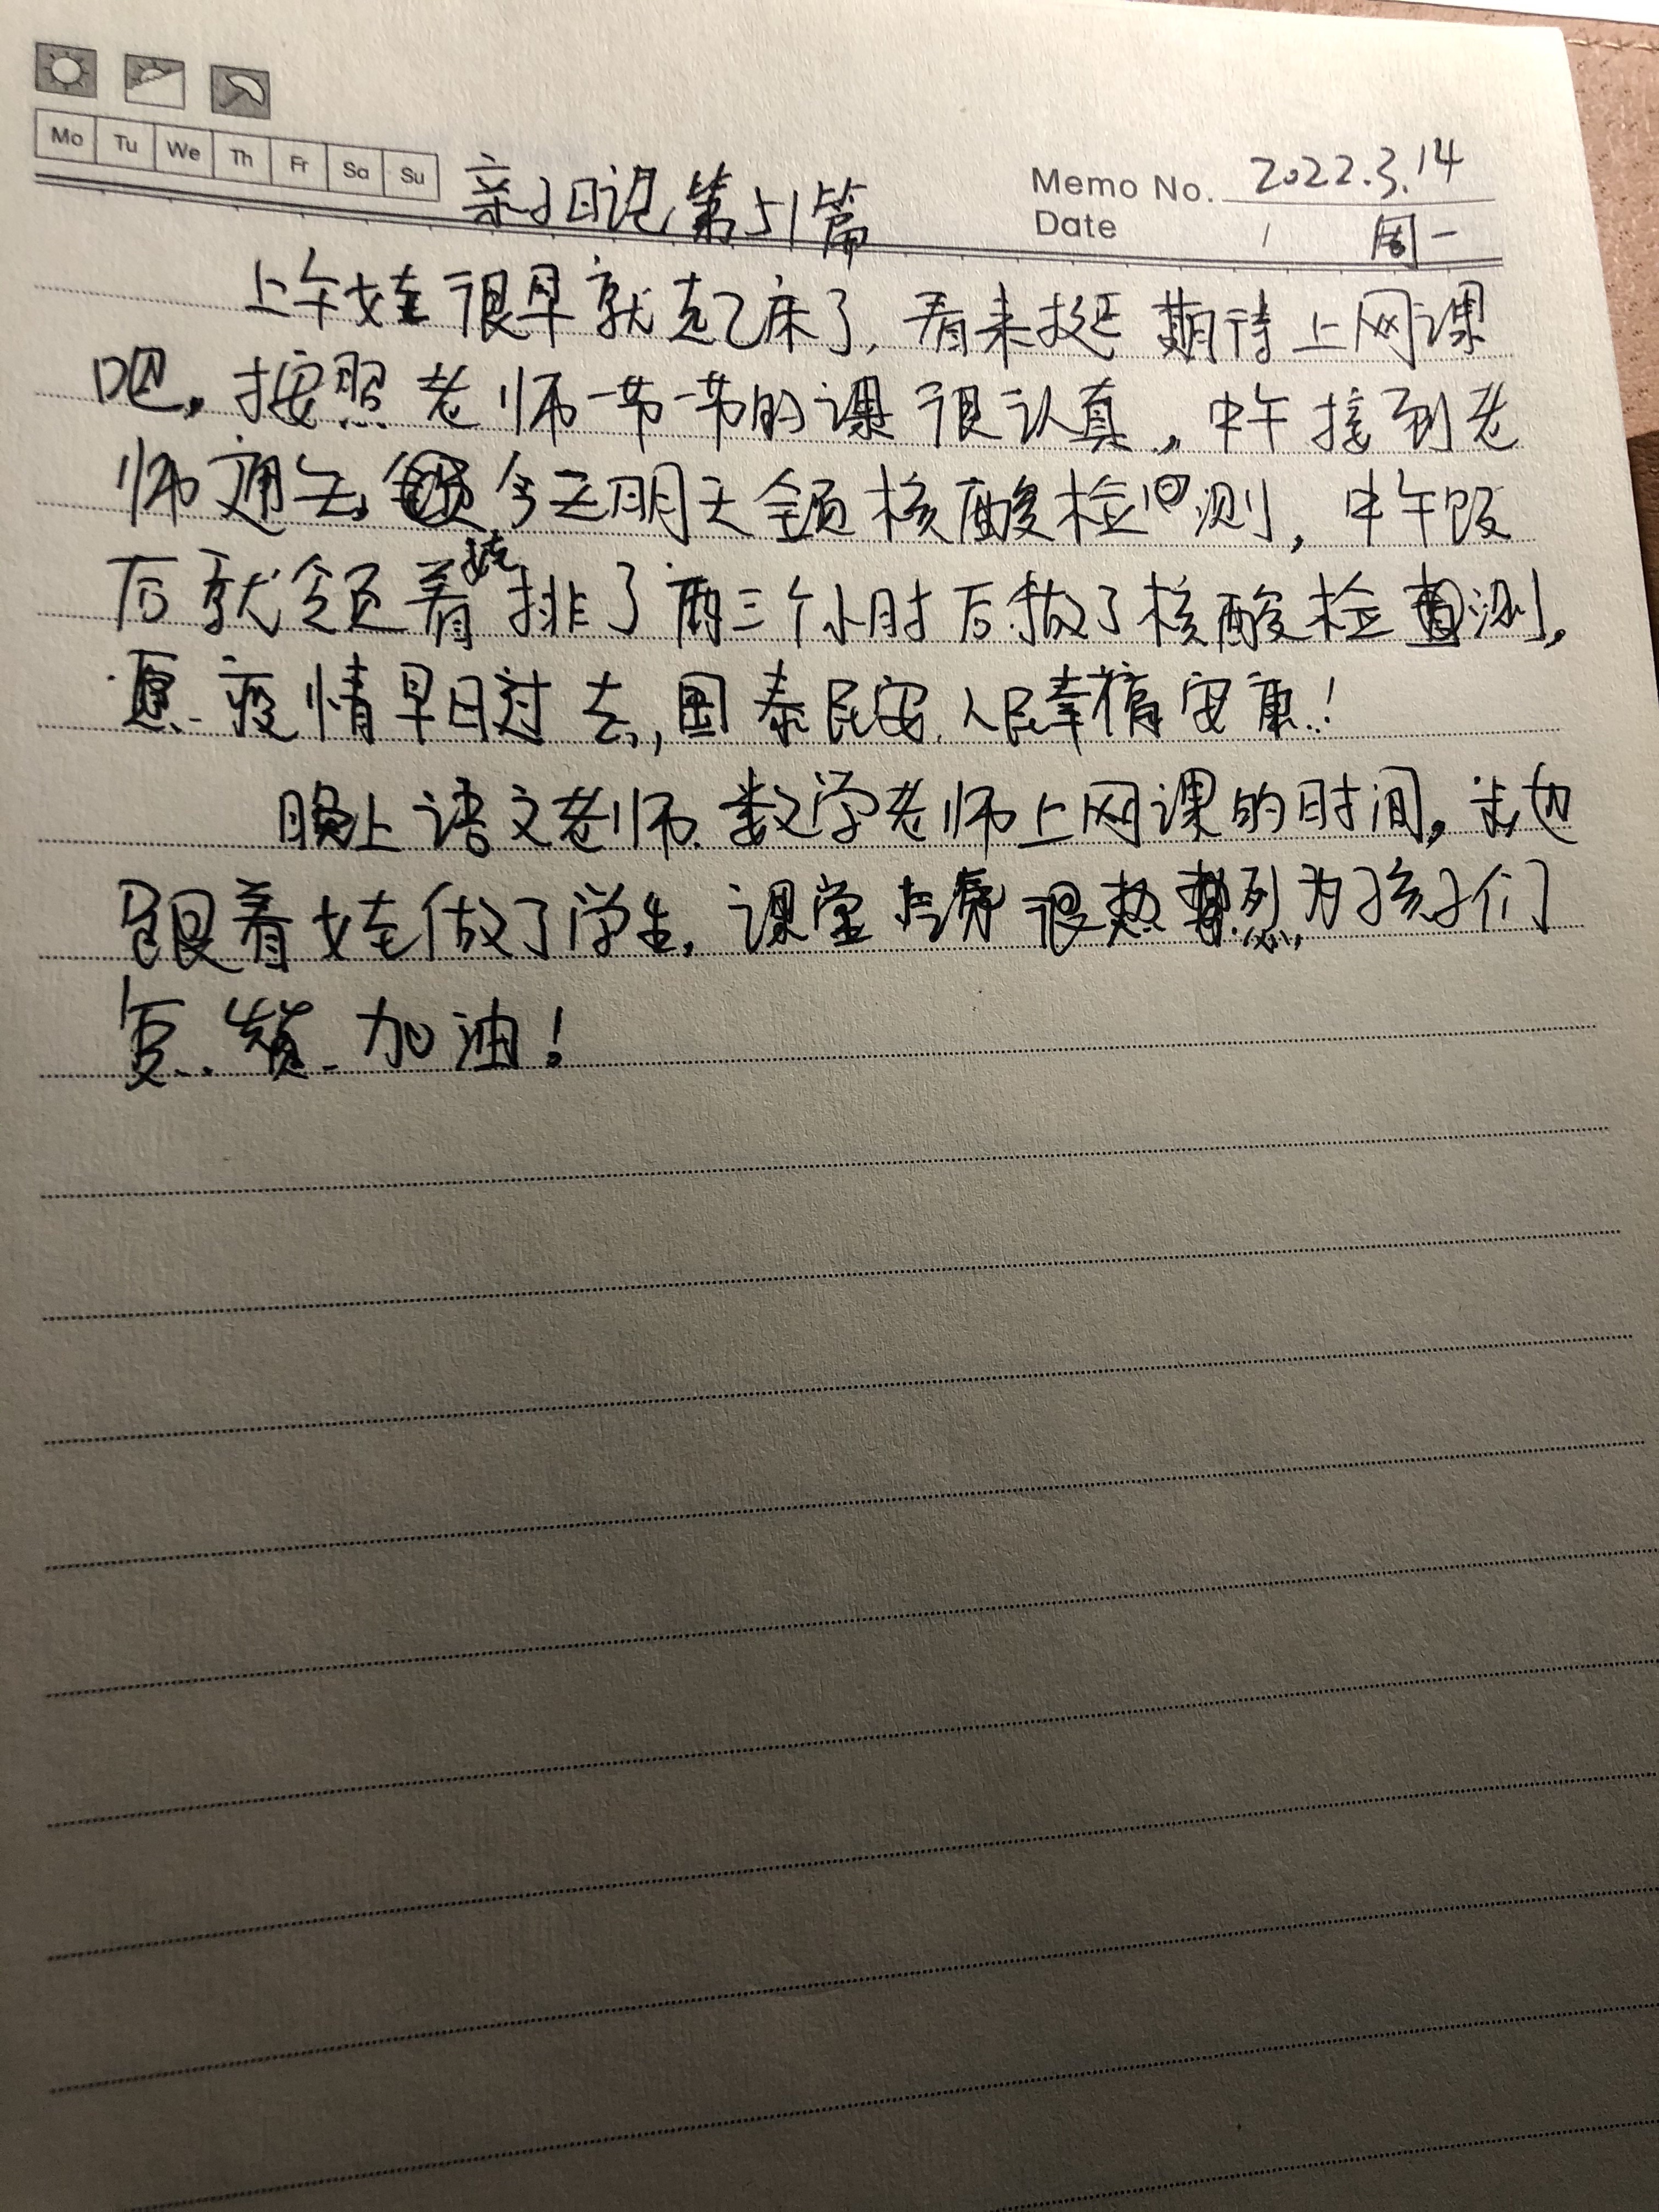 Mo Tu We Th Fr Sa Su
Memo No. 2022.3.14
Date 周一
亲子日记第51篇
上午娃很早就起床了,看来挺期待上网课
吧,按照老师一节一节的课很认真,中午接到老
师通知,今天明天全员核酸检测,中午饭
后就领着娃排了两三个小时后做了核酸检测,
愿疫情早日过去,国泰民安,人民幸福安康!
晚上语文老师、数学老师上网课的时间,我也
跟着娃做了学生,课堂气氛很热烈,为孩子们
点赞、加油!